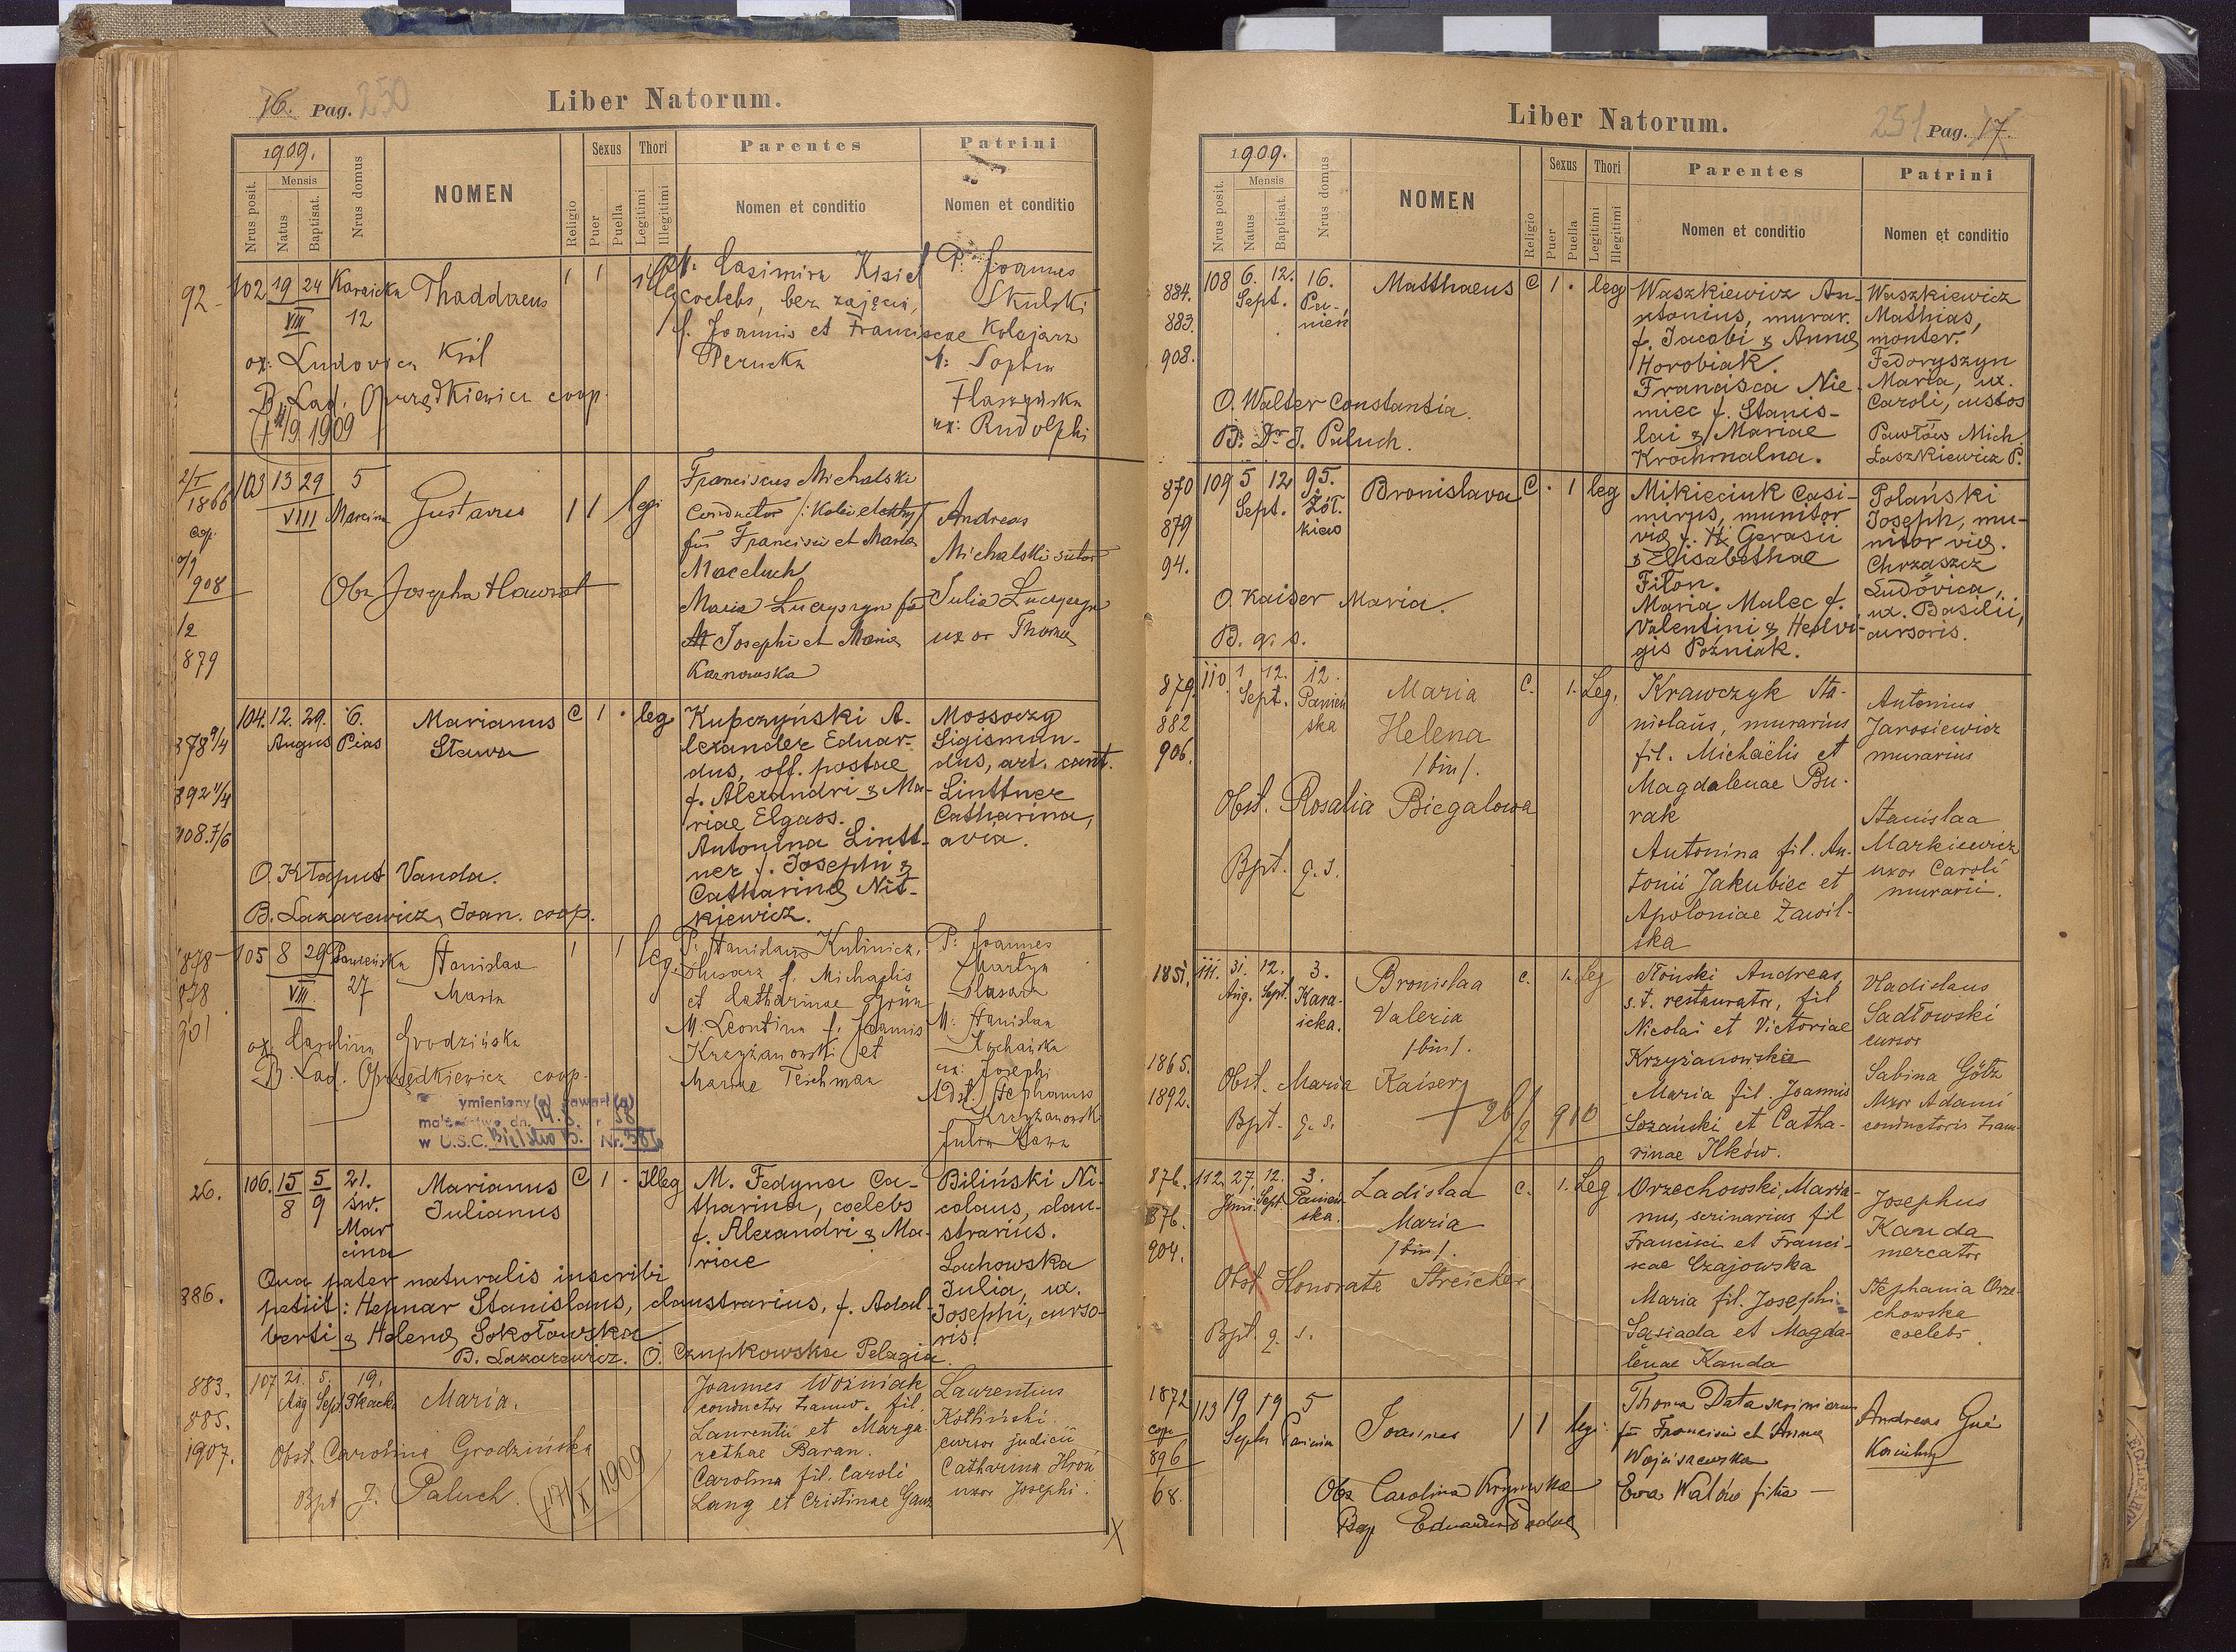 16. Pag. 250
Liber Natorum.
1909.
Nrus posit.
Mensis
Natus
Baptisat.
Nrus domus
NOMEN
Religio
Sexus
Puer
Puella
Thori
Legitimi
Illegitimi
Parentes
Nomen et conditio
Patrini
Nomen et conditio
92
102 19 24 VIII
12
Thaddaeus
1 1 illeg
M. Casimira Kisiel
coelebs, bez zajęcia,
f. Joannis et Franciscae
Perucka
P: Joannes
Skulski
Kolejarz
M: Sophia
ux: Rudolphi
ox: Ludovica Król
B. Lad. Oprzędkiewicz coop.
1909
2/I
1866
cop.
908
1/2
879
103 13 29 VIII
5
Marcina
Gustavus
1 1 leg.
Franciscus Michalski
Conductor
fil Francisci et Maria
Maceluch
Maria Lucyszyn fa
Josephi et Maria
Karnowska
Andreas
Michalski sutor
Julia Lucyszyn
uxor Thomae
Obs Josepha Hawrot
878 9/4
892 11/4
908. 7/6
104. 12. 29. 6.
Augus Pias
Marianus
Stawa
C 1 . leg
Kupczyński A-
lexander Eduar-
dus, off. postae
f. Alexandri & Ma-
riae Elgass.
Antonina Lintt-
ner f. Josephi &
Catharinae Nit-
kiewicz.
Mossoczy
Sigismun-
dus, art. cant.
Linttner
Catharina,
avia.
O. Kłaput Vanda.
B. Lazarewicz Joan. coop.
878
878
901
105 8 29 VIII
27
Stanislaa
Maria
1 1 leg.
P: Stanislaus Kulinicz,
ślusarz f. Michaelis
et Catharinae Grün
M. Leontina f. Joannis
Krzyżanowski et
Mariae Teichman
P: Joannes
Martyn
ślusarz
M: Stanislaa
Kochańska
ux: Josephi
Adst. Stephanus
Krzyżanowski
Julia Kawa
ox: Carolina Grodzińska
B. Lad. Oprzędkiewicz coop.
ymieniony (a) zawarł (a)
małżeństwo dn. 19.5. r. 58
w U.S.C. Bielsko B. Nr. 386
26.
886.
106. 15/8 5/9
21.
św.
Mar
cina
Marianus
Julianus
C 1 . Illeg
M. Fedyna Ca-
tharina, coelebs
f. Alexandri & Ma-
riae
Biliński Ni-
colaus, clau-
strarius.
Lachowska
Julia, ux.
Josephi, curso-
ris.
Qua pater naturalis inscribi
petiit: Hepnar Stanislaus, claustrarius, f. Adal-
berti & Helenae Sokołowska
B. Lazarewicz. O. Czupkowska Pelagia.
883.
885.
1907.
107 21. 5. 19.
Aug Sept. Tkacka
Maria.
Joannes Woźniak
conductor tramw. fil.
Laurentii et Marga-
rethae Baran.
Carolina fil. Caroli
Lang et Cristinae Ganz
Laurentius
Kotliński
cursor judicii
Catharina Hroń
uxor Josephi.
Obst. Carolina Grodzińska
Bpt J. Paluch.
† 17/XI 1909
X
Liber Natorum.
251 Pag. 17.
1909.
Nrus posit.
Mensis
Natus
Baptisat.
Nrus domus
NOMEN
Religio
Sexus
Puer
Puella
Thori
Legitimi
Illegitimi
Parentes
Nomen et conditio
Patrini
Nomen et conditio
884.
883.
908.
108 6. 12. 16.
Sept. Pa-
nień
Matthaeus
C 1 . leg
Waszkiewicz An-
ntonius, murar.
f. Jacobi & Annae
Horobiak.
Francisca Nie-
miec f. Stanis-
lai & Mariae
Krochmalna.
Waszkiewicz
Mathias,
monter.
Fedoryszyn
Maria, ux.
Caroli, custos
Pawłów Mich.
Łaszkiewicz P.
O. Walter Constantia.
B: Dr J. Paluch.
870
879
94.
109 5 12 95.
Sept. Żół.
kiew
Bronislava
C . 1 leg
Mikieciuk Casi-
mirus, munitor
viae f. Gerasii
& Elisabethae
Filon.
Maria Malec f.
Valentini & Hedvi-
gis Poźniak.
Polański
Joseph, mu-
nitor viae.
Chrzaszcz
Ludovica,
ux. Basilii,
cursoris.
O. Kaiser Maria.
B. q. s.
879.
882
906.
110. 1 12. 12.
Sept. Panień
ska
Maria
Helena
/bin/.
C. 1. Leg.
Krawczyk Sta-
nislaus, murarius
fil. Michaëlis et
Magdalenae Bu-
rak
Antonina fil. An-
tonii Jakubiec et
Apoloniae Zawil-
ska
Antonius
Jarosiewicz
murarius
Stanislaa
Markiewicz
uxor Caroli
murarii.
Obst. Rosalia Biegalowa
Bpt. q. s.
1851.
1865.
1892.
111. 31. 12. 3.
Aug. Sept. Kara-
icka.
Bronislaa
Valeria
/bin/.
C. 1. Leg
Słoński Andreas,
s. t. restaurator, fil
Nicolai et Victoriae
Krzyżanowska
Maria fil. Joannis
Sozański et Catha-
rinae Ilków.
Vladislaus
Sadłowski
cursor
Sabina Götz
uxor Adami
conductoris tram-
Obst. Maria Kaiser
Bpt. q. s.
† 26/2 910
876.
876.
904.
112. 27. 12. 3.
Junii Sept. Panień-
ska.
Ladislaa
Maria
/bin/.
C. 1. Leg
Orzechowski Maria-
nus, scrinarius fil
Francisci et Franci-
scae Czajowska
Maria fil. Josephi
Sąsiada et Magda-
lenae Kanda
Josephus
Kanda
mercator
Stephania Orze-
chowska
coelebs.
Obst. Honorata Streicher
Bpt. q. s.
1872
cop
896
68.
113 19 19 5
Septe
Joannes
1 1 leg.
Thoma Data
fil Francisci et Anna
Wojciszewska
Eva Walów filia —
Andreas
Obs Carolina
Bap